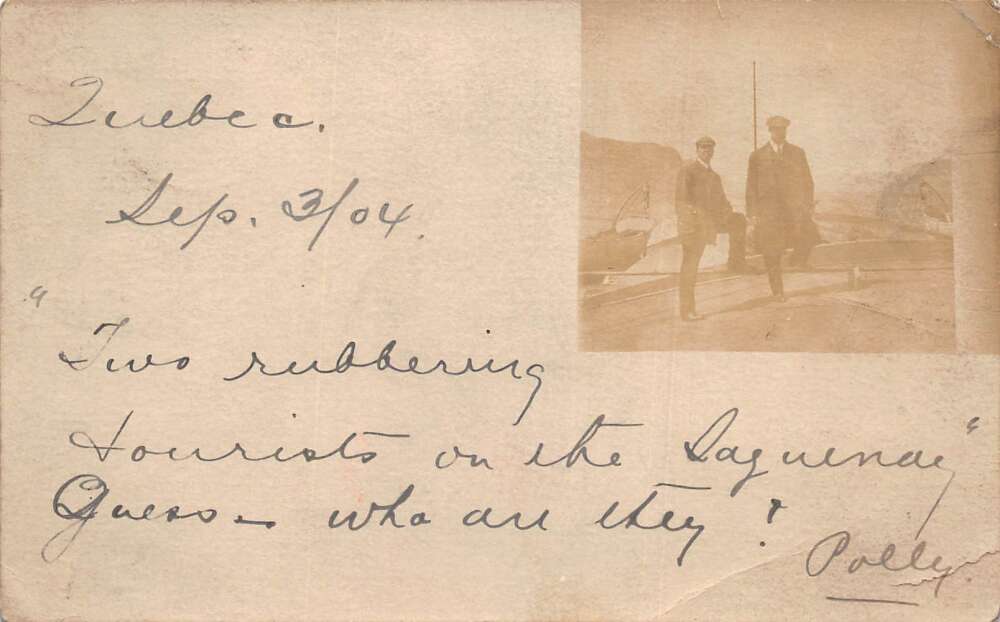 Quebec.
Sep. 3/04.
"Two rubbering
tourists on the Saguenay"
Guess – who are they?
Polly.